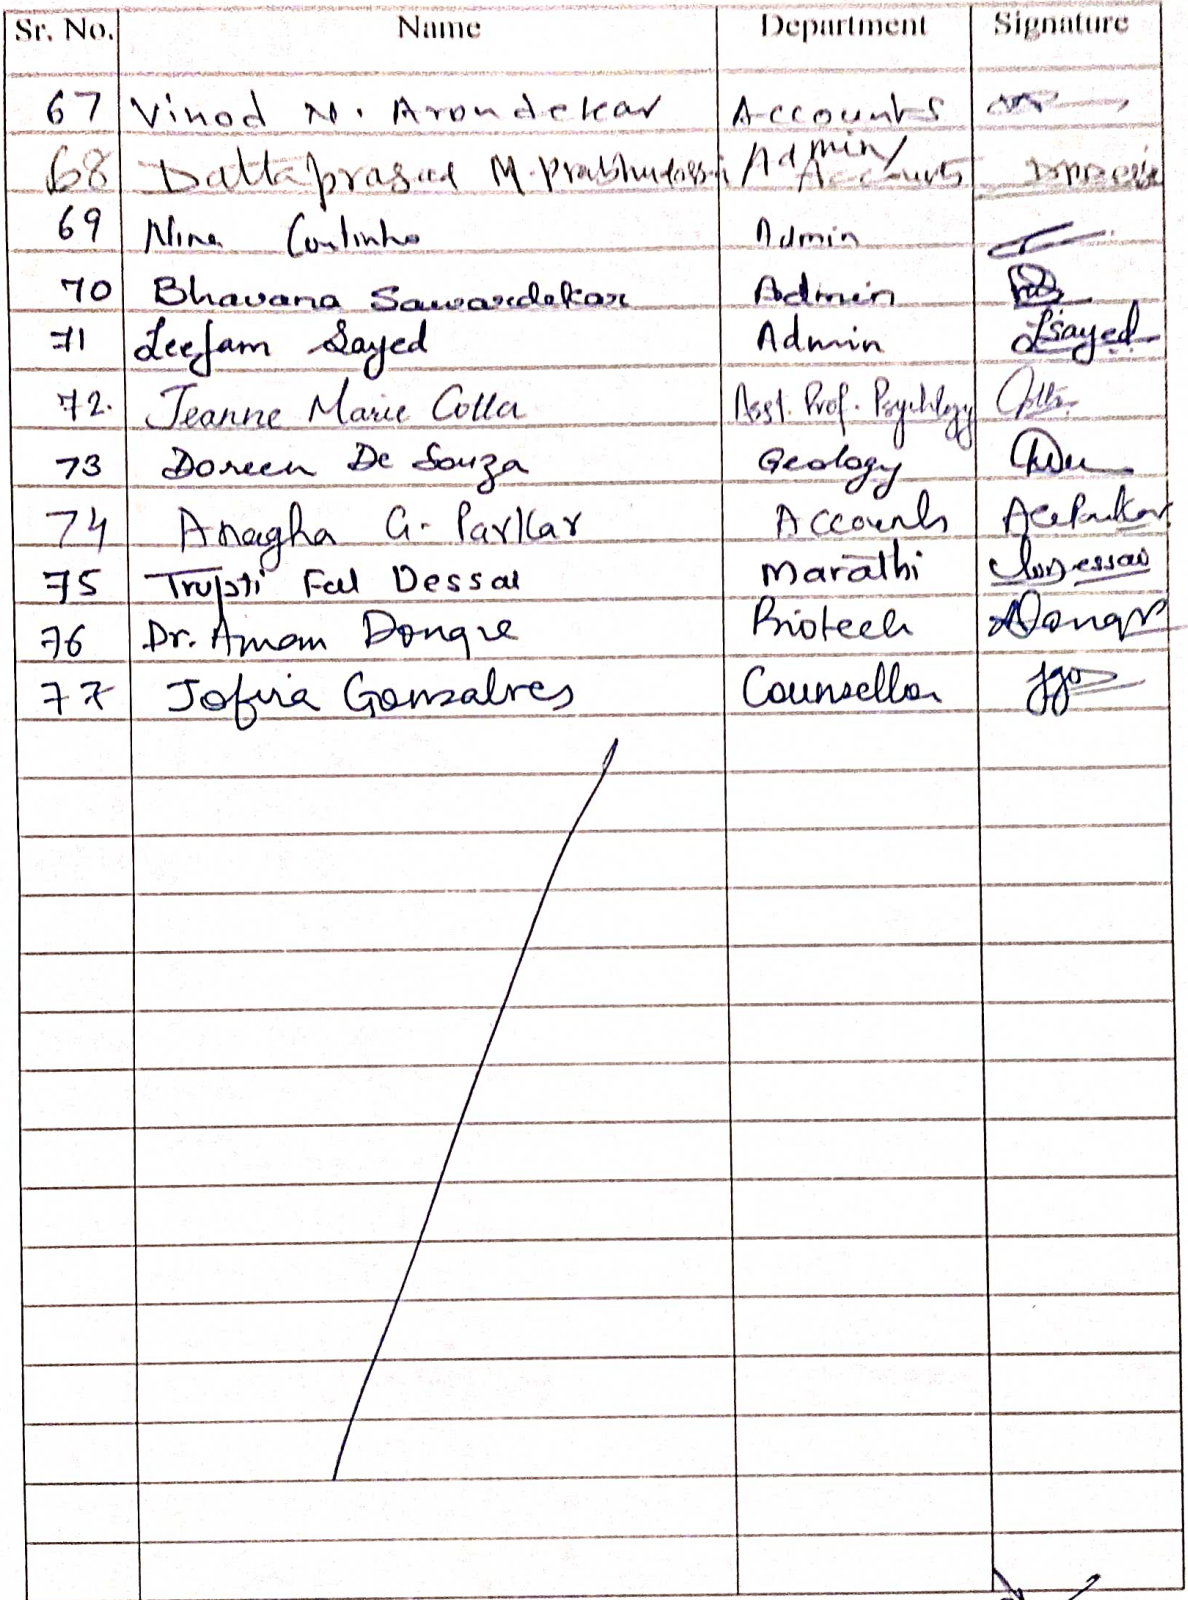 Sr. No. Name Department Signature
67 Vinod N. Arondekar Accounts
68 Dattaprasad M. Prabhudessai Admin/ Accounts
69 Nina Coutinho Admin
70 Bhavana Sawardekar Admin
71 Leejam Sayed Admin LSayed
72. Jeanne Marie Colla Asst. Prof. Psychology
73 Doreen De Souza Geology
74 Anagha G. Parkar Accounts
75 Trupti Fal Dessai Marathi
76 Dr. Amam Dongre Biotech
77 Jofira Gonsalves Counsellor